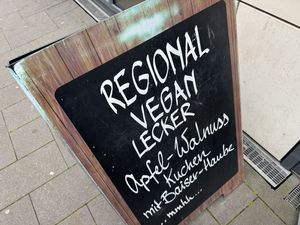 REGIONAL
VEGAN
LECKER
Apfel-Walnuss
Kuchen
mit Baiser-Haube
...mmhh...